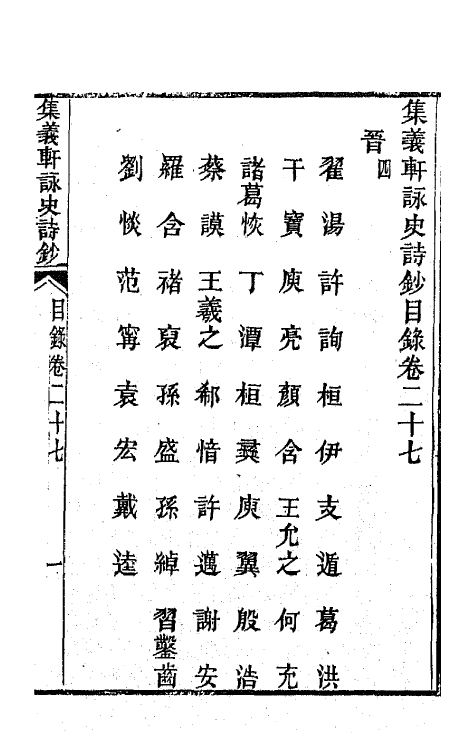 集義軒詠史詩鈔目錄卷二十七
晉四
翟湯 許詢 桓伊 支遁 葛洪
干寶 庾亮 顏含 王允之 何充
諸葛恢 丁潭 桓彝 庾翼 殷浩
蔡謨 王羲之 郗愔 許邁 謝安
羅含 褚裒 孫盛 孫綽 習鑿齒
劉惔 范甯 袁宏 戴逵
集義軒詠史詩鈔 目錄卷二十七 一